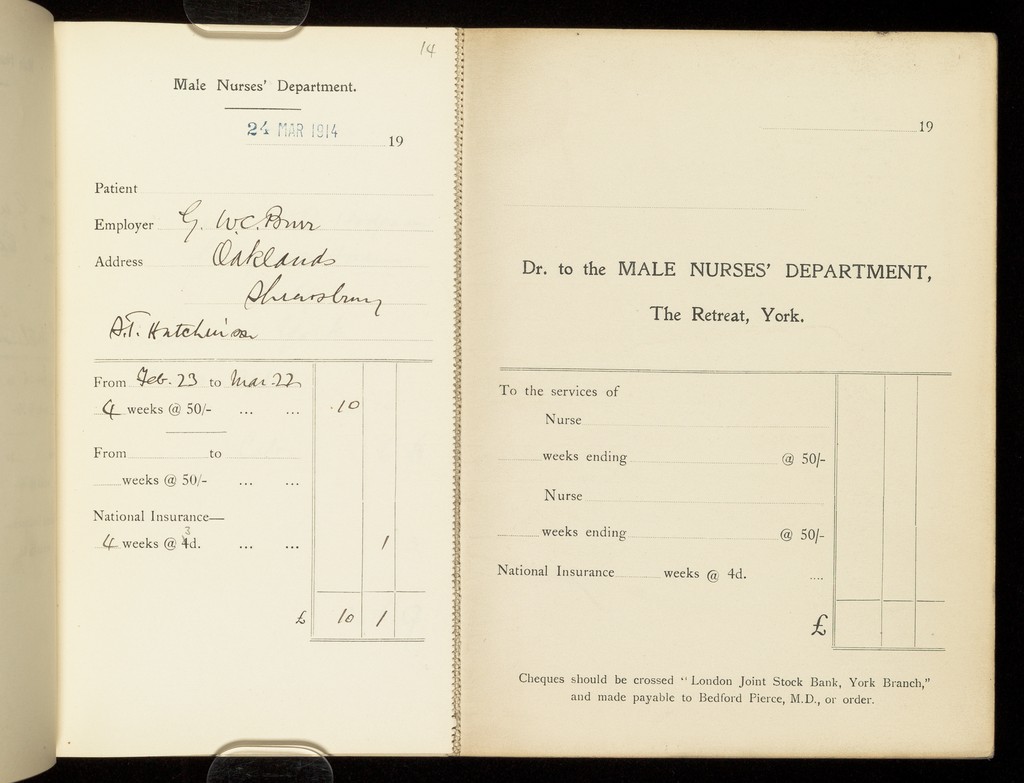 14
Male Nurses' Department.
24 MAR 1914
19
Patient
Employer G. W.C. Burr
Address Oaklands
Shrewsbury
A.T. Hutchinson
From Feb. 23 to Mar. 22
4 weeks @ 50/- ... ... 10
From to
weeks @ 50/- ... ...
National Insurance—
3
4 weeks @ 4d. ... ... 1
£ 10 1
19
Dr. to the MALE NURSES' DEPARTMENT,
The Retreat, York.
To the services of
Nurse
weeks ending @ 50/-
Nurse
weeks ending @ 50/-
National Insurance weeks @ 4d. ....
£
Cheques should be crossed "London Joint Stock Bank, York Branch,"
and made payable to Bedford Pierce, M.D., or order.